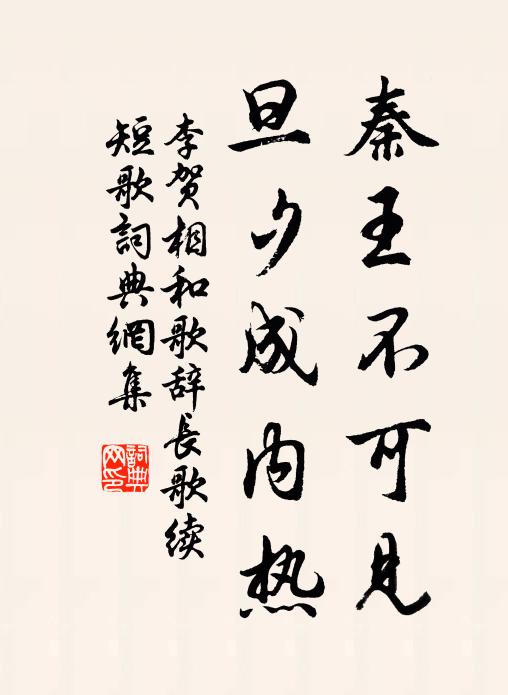 秦王不可見
旦夕成内热
李贺相和歌辞長歌续
短歌詞典網集
詞典
网印